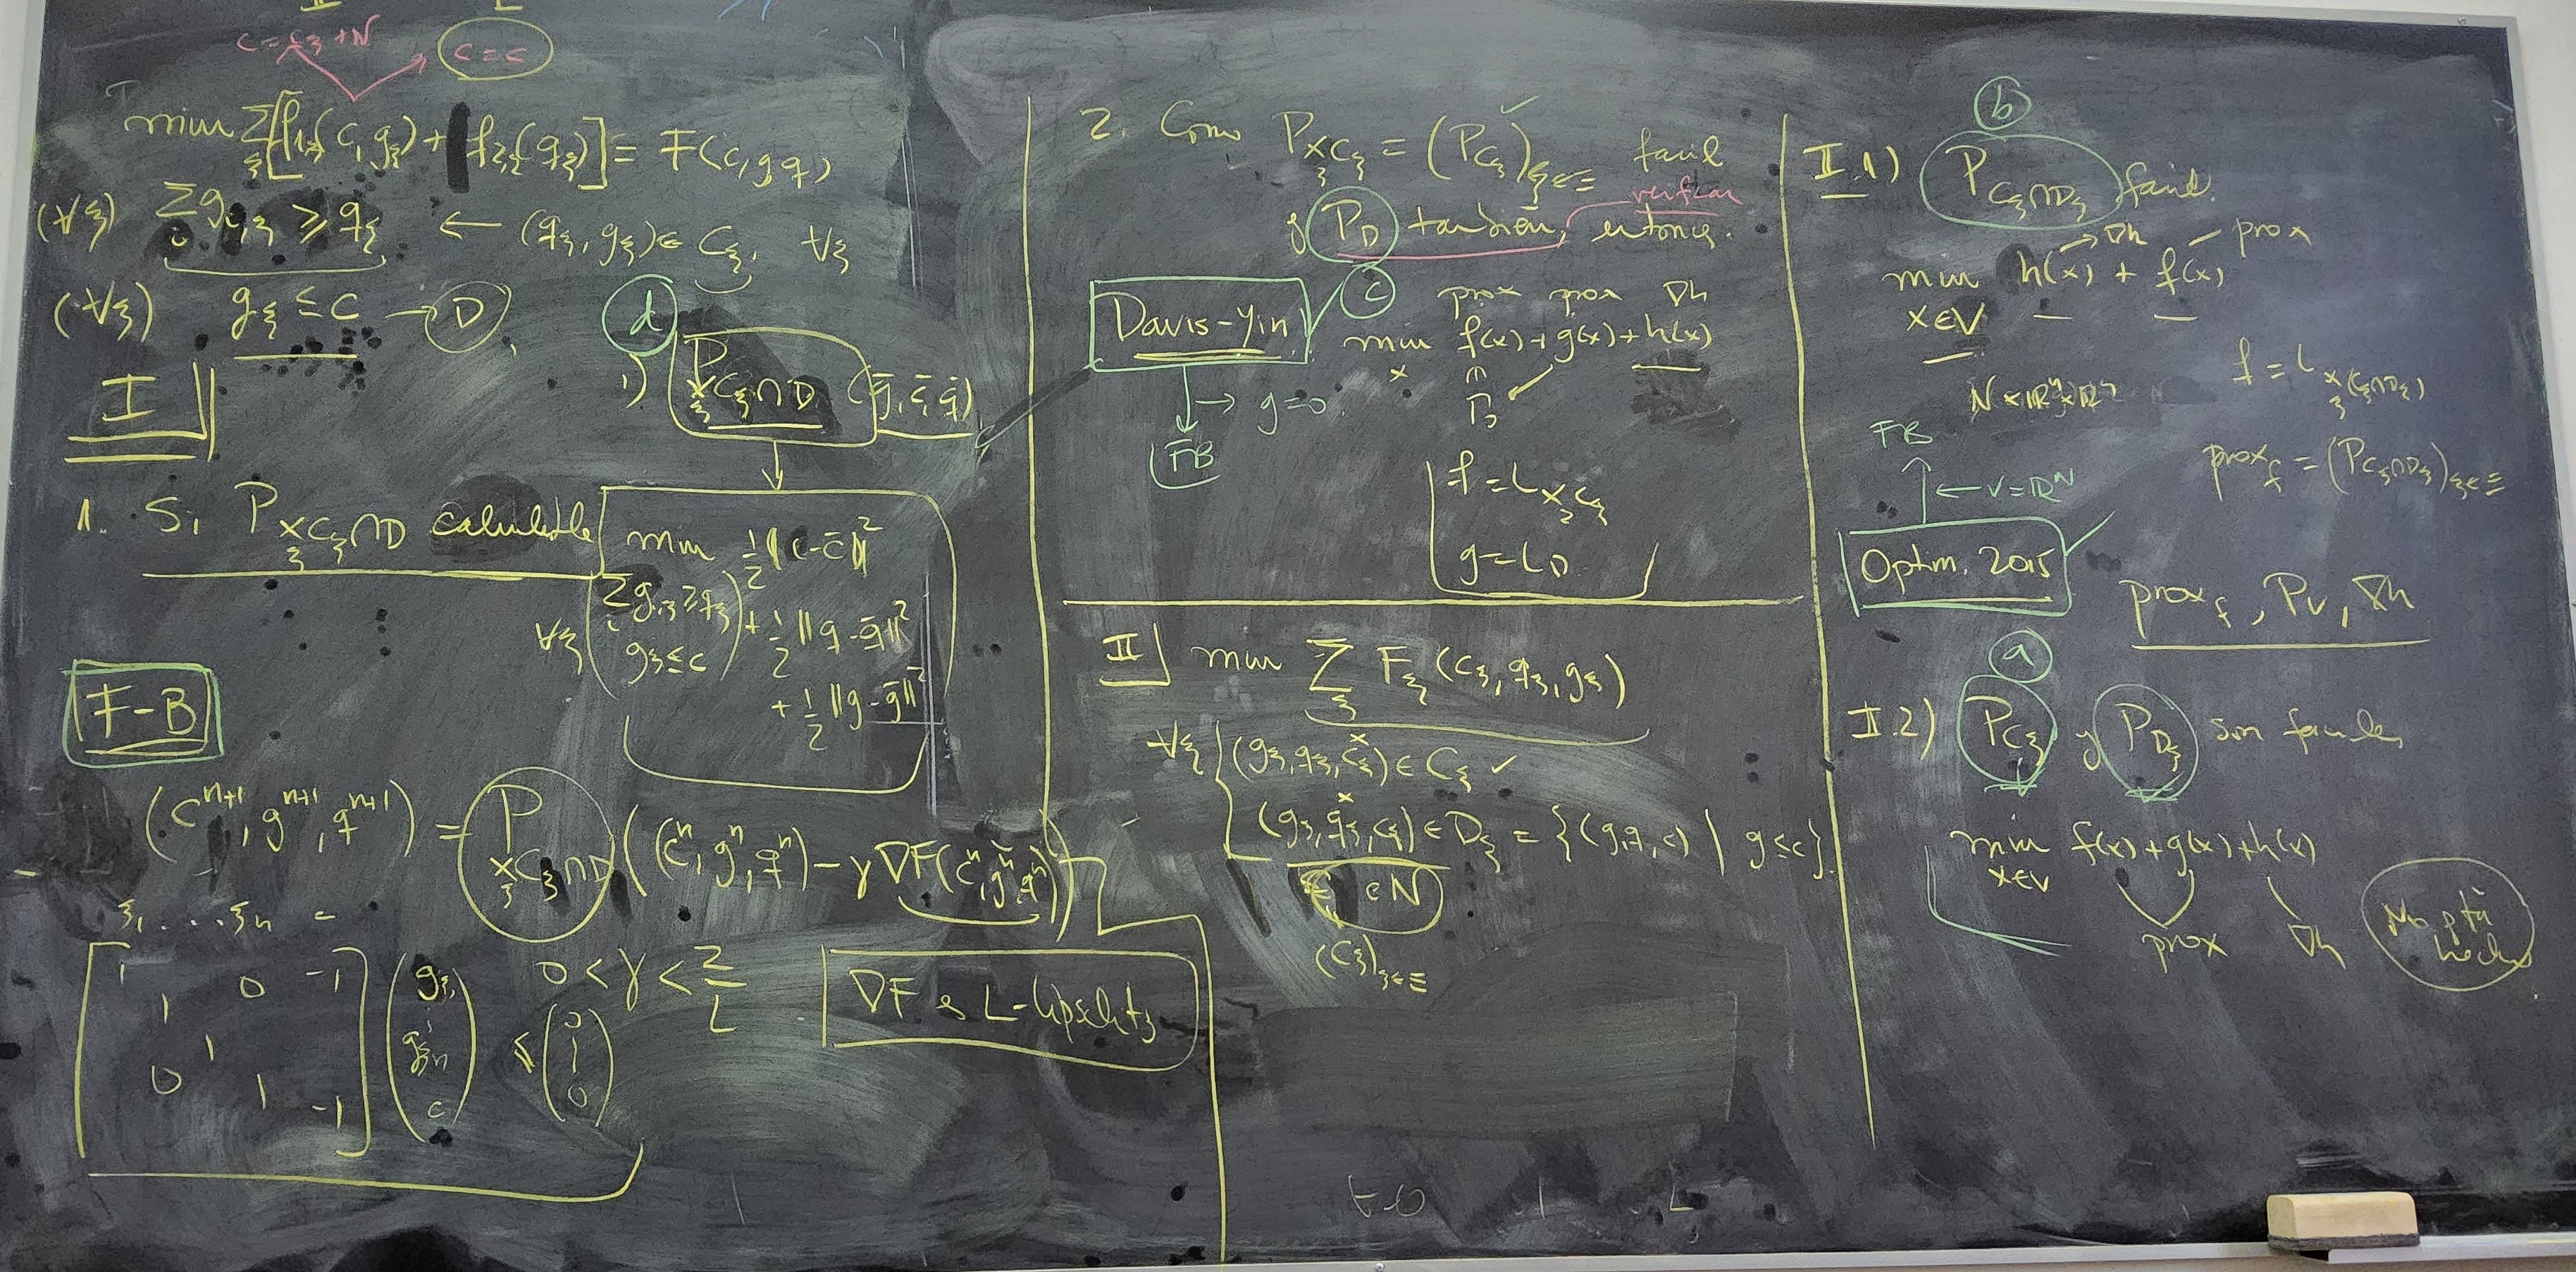 II L
C = C_ξ + N
C = C
min Σ_ξ [f_{1,ξ}(c, g_ξ) + f_{2,ξ}(q_ξ)] = F(c, g, q),
(∀ξ) Σ_i g_{i,ξ} ≥ q_ξ ← (q_ξ, g_ξ) ∈ C_ξ, ∀ξ
(∀ξ) g_ξ ≤ C → D,
I
d
1) P_{×_ξ C_ξ ∩ D} (ḡ, c̄, q̄)
1. Si P_{×_ξ C_ξ ∩ D} calculable
min ½‖c - c̄‖²
∀ξ (Σ_i g_{i,ξ} ≥ q_ξ + ½‖q - q̄‖²
g_ξ ≤ c) + ½‖g - ḡ‖²
F-B
(c^{n+1}, g^{n+1}, q^{n+1}) = P_{×_ξ C_ξ ∩ D} ((c^n, g^n, q^n) - γ∇F(c^n, g^n, q^n))
ξ_1 .... ξ_n
[1 0 -1
1
1
0 1 -1] (g_{ξ_1} ⋮ g_{ξ_n} c) ≤ (0 | 0)
0 < γ < 2/L
∇F es L-Lipschitz
2. Como P_{×_ξ C_ξ} = (P_{C_ξ})_{ξ∈Ξ} ✓ facil
verificar
y P_D también, entonces.
Davis-Yin ✓
c
prox prox ∇h
min_x f(x) + g(x) + h(x)
∩ Γ_0
→ g = 0
FB
f = ι_{×_ξ C_ξ}
g = ι_D
II min Σ_ξ F_ξ(c_ξ, q_ξ, g_ξ)
∀ξ { (g_ξ, q_ξ, c_ξ) ∈ C_ξ ✓
(g_ξ, q_ξ, c_ξ) ∈ D_ξ = {(g, q, c) | g ≤ c}.
∈ N
(C_ξ)_{ξ∈Ξ}
b
II.1) P_{C_ξ ∩ D_ξ} facil.
→ ∇h – prox
min_{x∈V} h(x) + f(x)
N × ℝ^q × ℝ^q
f = ι_{×_ξ (C_ξ ∩ D_ξ)}
FB
prox_f = (P_{C_ξ ∩ D_ξ})_{ξ∈Ξ}
← V = ℝ^N
Optim. 2015
prox_f, P_V, ∇h
a
II.2) P_{C_ξ} y P_{D_ξ} son faciles
min_{x∈V} f(x) + g(x) + h(x)
prox ∇h
No está hecho